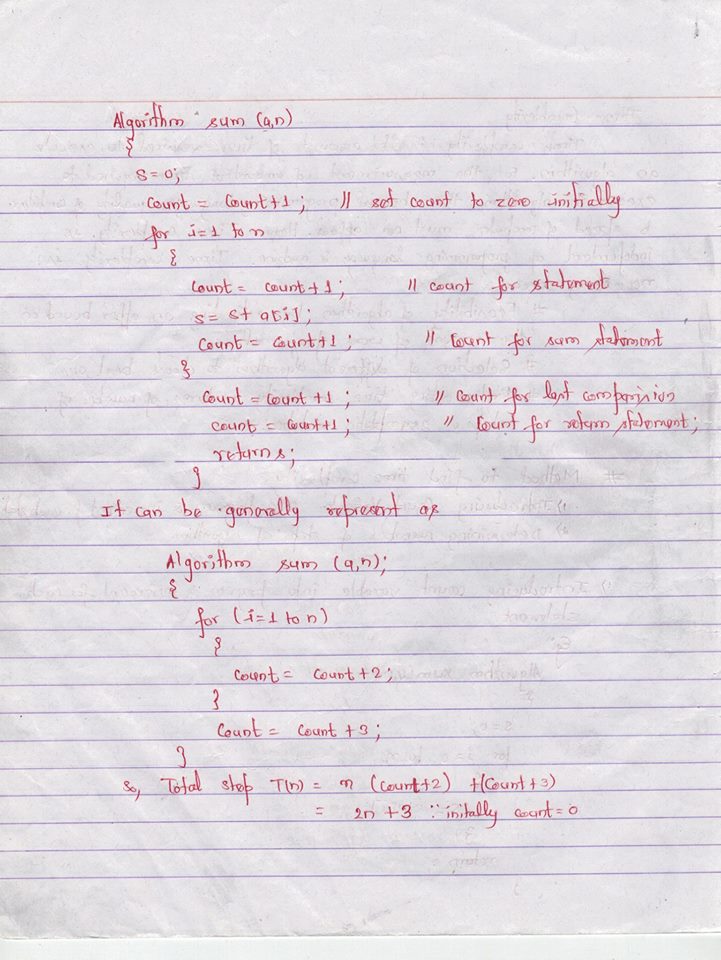 Algorithm sum (a,n)
{
s = 0;
count = count+1; // set count to zero initially
for i=1 to n
{
count = count+1; // count for statement
s = s+ a[i];
count = count+1; // count for sum statement
}
count = count +1; // count for last comparision
count = count+1; // count for return statement;
return s;
}
It can be generally represent as
Algorithm sum (a,n);
{
for (i=1 to n)
{
count = count +2;
}
count = count +3;
}
so, Total step T(n) = n (count+2) +(count+3)
= 2n +3 ∵ initally count = 0